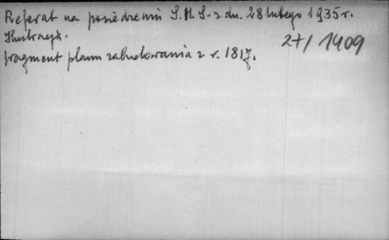 Referat na posiedzeniu S.H.S. z dn. 28 lutego 1935 r.
Ilustracje.
27/1409
fragment planu zabudowania z r. 1817.